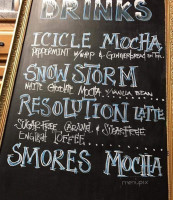 DRINKS
ICICLE MOCHA
PEPPERMINT W/WHIP & GINGERBREAD
SNOW STORM
WHITE CHOCOLATE MOCHA W/VANILLA BEAN
RESOLUTION LATTE
SUGAR-FREE CARAMEL & SUGARFREE
ENGLISH TOFFEE
SMORES MOCHA